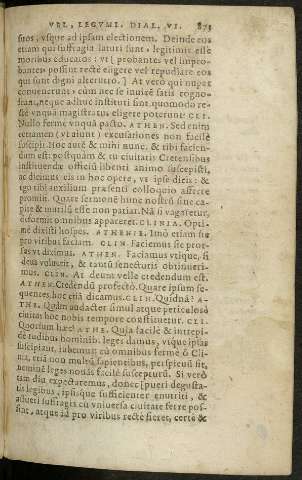 VEL, LEGVMI. DIAL. VI. 871
suros, vsque ad ipsam electionem. Deinde eos
etiam qui suffragia laturi sunt, legitimis esse
moribus educatos: vt [probantes vel impro-
bantes] possint recte eligere vel repudiare eos
qui sunt digni alterutro.] At verò qui nuper
conuenerunt, cùm nec se inuicē satis cogno-
scant, neque adhuc instituti sint quomodo re-
ctè vnquā magistratus eligere poterunt? CLI.
Nullo fermè vnquā pacto. ATHEN. Sed enim
certamen (vt aiunt) excusationes non facilè
suscipit. Hoc autē & mihi nunc, & tibi facien-
dum est: postquàm & tu ciuitatis Cretensibus
instituendæ officiū libenti animo suscepisti,
ac decimus eis in hoc opere, vt ipse dicis: & e-
go tibi auxilium præsenti colloquio afferre
promisi. Quare sermonē hunc nostrū sine ca-
pite & mutilū esse non patiar. Nā si vagaretur,
difformis omnibus appareret. CLINIA. Opti-
mè dixisti hospes. ATHENIE. Imò etiam sic
pro viribus faciam. CLIN. Faciemus sic pror-
sus vt diximus. ATHEN. Faciamus vtique, si
deus voluerit, & tantū senectutis obtinueri-
mus. CLIN. At deum velle credendum est.
ATHEN. Credendū profectò. Quare ipsum se-
quentes, hoc etiā dicamus. CLIN. Quidnā? A-
THE. Quàm audacter simul atque periculosè
ciuitas hoc nobis tempore constituetur. CLI.
Quorsum hæc? ATHE. Quia facilè & intrepi-
dè rudibus hominib. leges damus, vtque ipsas
suscipiant, iubemus: cū omnibus fermè ô Cli-
nia, etiā non multū sapientibus, perspicuū sit,
neminē leges nouas facilè suscepturū. Si verò
tam diu expectaremus, donec [pueri degusta-
tis legibus, ipsisque sufficienter enutriti, &
adueti suffragiis cū vniuersa ciuitate ferre pos-
sint, atque id pro viribus rectè fieret, certè &